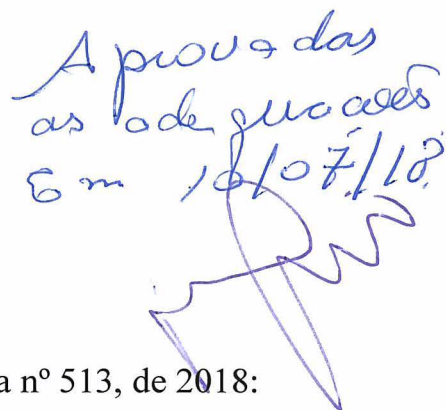 Aprovadas
as adequações
Em 10/07/18
a nº 513, de 2018: